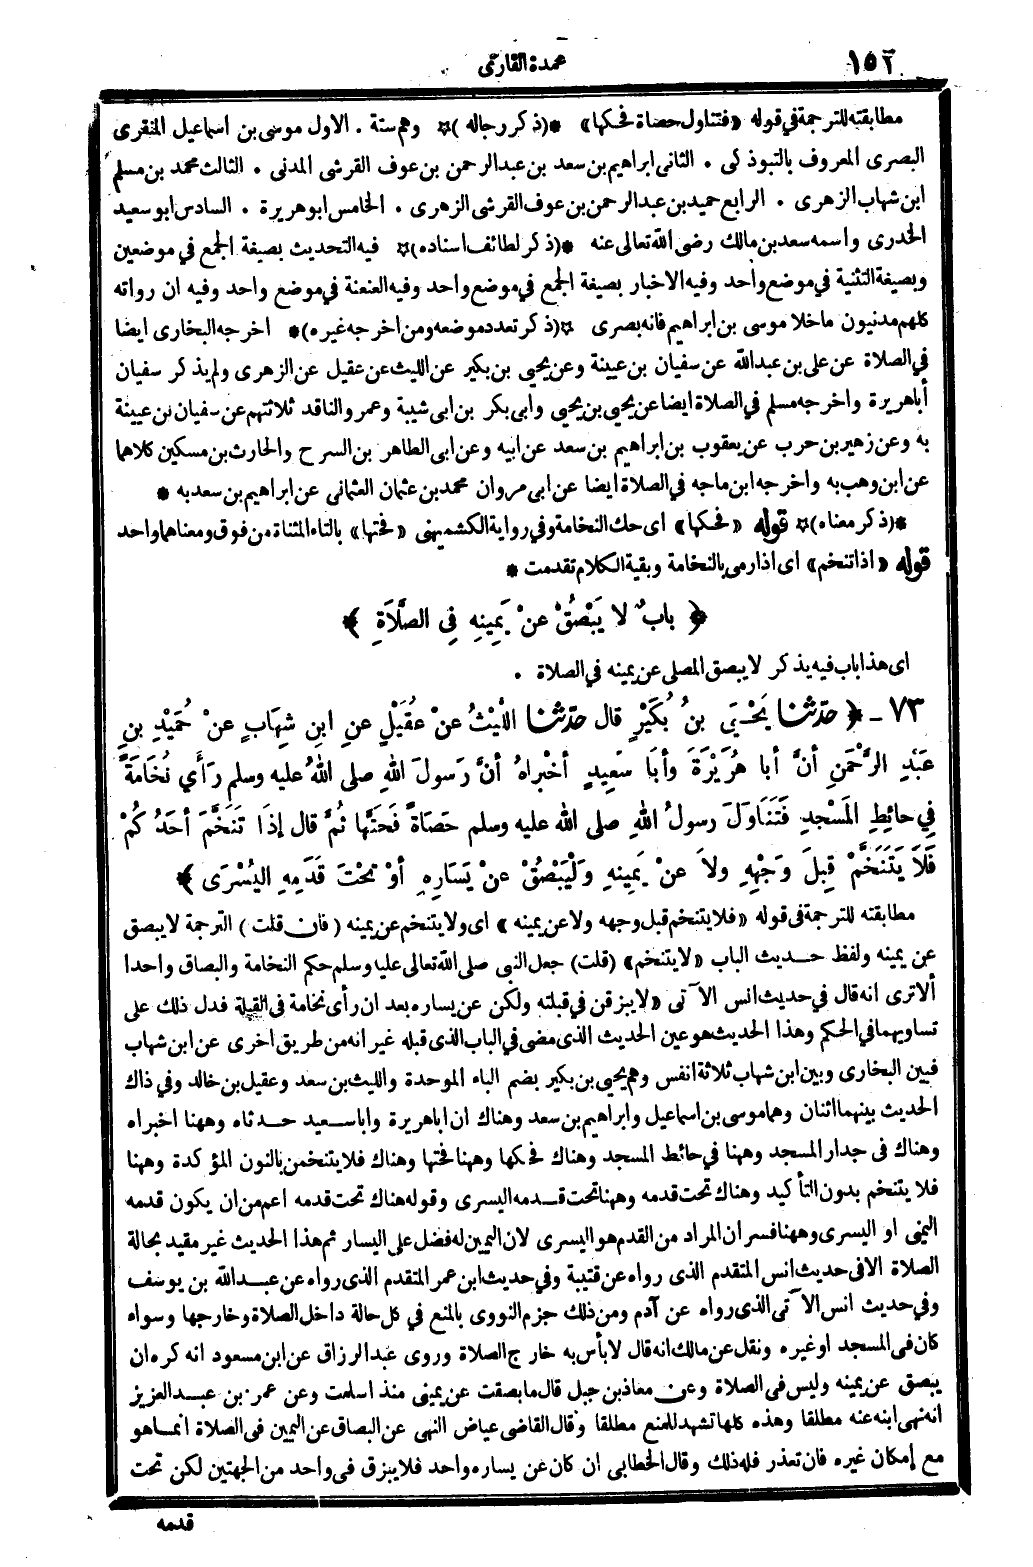 ١٥٢
عمدة القارى
مطابقته للترجمة في قوله «فتناول حصاة فحكها» *(ذكر رجاله)* وهم ستة . الاول موسى بن اسماعيل المنقرى
البصرى المعروف بالتبوذكى . الثانى ابراهيم بن سعد بن عبد الرحمن بن عوف القرشى المدنى . الثالث محمد بن مسلم
ابن شهاب الزهرى . الرابع حميد بن عبد الرحمن بن عوف القرشى الزهرى . الخامس ابو هريرة . السادس ابو سعيد
الخدرى واسمه سعد بن مالك رضى الله تعالى عنه *(ذكر لطائف اسناده)* فيه التحديث بصيغة الجمع في موضعين
وبصيغة التثنية في موضع واحد وفيه الاخبار بصيغة الجمع في موضع واحد وفيه العنعنة في موضع واحد وفيه ان رواته
كلهم مدنيون ما خلا موسى بن ابراهيم فانه بصرى *(ذكر تعدد موضعه ومن اخرجه غيره)* اخرجه البخارى ايضا
في الصلاة عن على بن عبد الله عن سفيان بن عيينة وعن يحيى بن بكير عن الليث عن عقيل عن الزهرى ولم يذكر سفيان
أبا هريرة واخرجه مسلم في الصلاة ايضا عن يحيى بن يحيى وابى بكر بن ابى شيبة وعمرو الناقد ثلاثتهم عن سفيان بن عيينة
به وعن زهير بن حرب عن يعقوب بن ابراهيم بن سعد عن ابيه وعن ابى الطاهر بن السرح والحارث بن مسكين كلاهما
عن ابن وهب به واخرجه ابن ماجه في الصلاة ايضا عن ابى مروان محمد بن عثمان العثمانى عن ابراهيم بن سعد به *
*(ذكر معناه)* قوله «فحكها» اى حك النخامة وفي رواية الكشميهنى «فحتها» بالتاء المثناة من فوق ومعناهما واحد
قوله «اذا تنخم» اى اذا رمى بالنخامة وبقية الكلام تقدمت *
﴿ بابٌ لا يَبْصُقْ عنْ يَمِينِهِ فِى الصَّلاَةِ ﴾
اى هذا باب فيه يذكر لا يبصق المصلى عن يمينه في الصلاة .
٧٣ - ﴿ حدّثنا يَحْيَى بنُ بُكَيْرٍ قال حدّثنا اللَّيْثُ عنْ عُقَيْلٍ عنِ ابنِ شِهَابٍ عنْ حُمَيْدِ بنِ
عَبْدِ الرَّحْمَنِ أنَّ أبا هُرَيْرَةَ وأبَا سَعِيدٍ أخْبراهُ أنَّ رَسولَ اللهِ صلى اللهُ عليه وسلم رَأَى نُخَامَةً
فِي حائِطِ المَسْجدِ فَتَنَاوَلَ رسولُ اللهِ صلى الله عليه وسلم حَصَاةً فَحَتَّها ثُمَّ قال إذَا تَنَخَّمَ أحَدُكُمْ
فَلاَ يَتَنَخَّمْ قِبلَ وَجْهِهِ ولاَ عنْ يَمِينِهِ وَلْيَبْصُقْ عنْ يَسَارِهِ أوْ تحْتَ قَدَمِهِ اليُسْرَى ﴾
مطابقته للترجمة في قوله «فلا يتنخم قبل وجهه ولا عن يمينه» اى ولا يتنخم عن يمينه (فان قلت) الترجمة لا يبصق
عن يمينه ولفظ حديث الباب «لا يتنخم» (قلت) جعل النبى صلى الله تعالى عليه وسلم حكم النخامة والبصاق واحدا
ألا ترى انه قال في حديث انس الآتى «لا يبزقن في قبلته ولكن عن يساره بعد ان رأى نخامة في القبلة فدل ذلك على
تساويهما في الحكم وهذا الحديث هو عين الحديث الذى مضى في الباب الذى قبله غير انه من طريق اخرى عن ابن شهاب
فبين البخارى وبين ابن شهاب ثلاثة انفس وهم يحيى بن بكير بضم الباء الموحدة والليث بن سعد وعقيل بن خالد وفي ذاك
الحديث بينهما اثنان وهما موسى بن اسماعيل وابراهيم بن سعد وهناك ان ابا هريرة وابا سعيد حدثاه وههنا اخبراه
وهناك في جدار المسجد وههنا في حائط المسجد وهناك فحكها وههنا فحتها وهناك فلا يتنخمن بالنون المؤكدة وههنا
فلا يتنخم بدون التأكيد وهناك تحت قدمه وههنا تحت قدمه اليسرى وقوله هناك تحت قدمه اعم من ان يكون قدمه
اليمنى او اليسرى وههنا فسر ان المراد من القدم هو اليسرى لان اليمين له فضل على اليسار ثم هذا الحديث غير مقيد بحالة
الصلاة الا في حديث انس المتقدم الذى رواه عن قتيبة وفي حديث ابن عمر المتقدم الذى رواه عن عبد الله بن يوسف
وفي حديث انس الآتى الذى رواه عن آدم ومن ذلك جزم النووى بالمنع في كل حالة داخل الصلاة وخارجها وسواه
كان في المسجد او غيره ونقل عن مالك انه قال لا بأس به خارج الصلاة وروى عبد الرزاق عن ابن مسعود انه كره ان
يبصق عن يمينه وليس في الصلاة وعن معاذ بن جبل قال ما بصقت عن يمينى منذ اسلمت وعن عمر بن عبد العزيز
انه نهى ابنه عنه مطلقا وهذه كلها تشهد للمنع مطلقا وقال القاضى عياض النهى عن البصاق عن اليمين في الصلاة انما هو
مع إمكان غيره فان تعذر فله ذلك وقال الخطابى ان كان عن يساره واحد فلا يبزق في واحد من الجهتين لكن تحت
قدمه